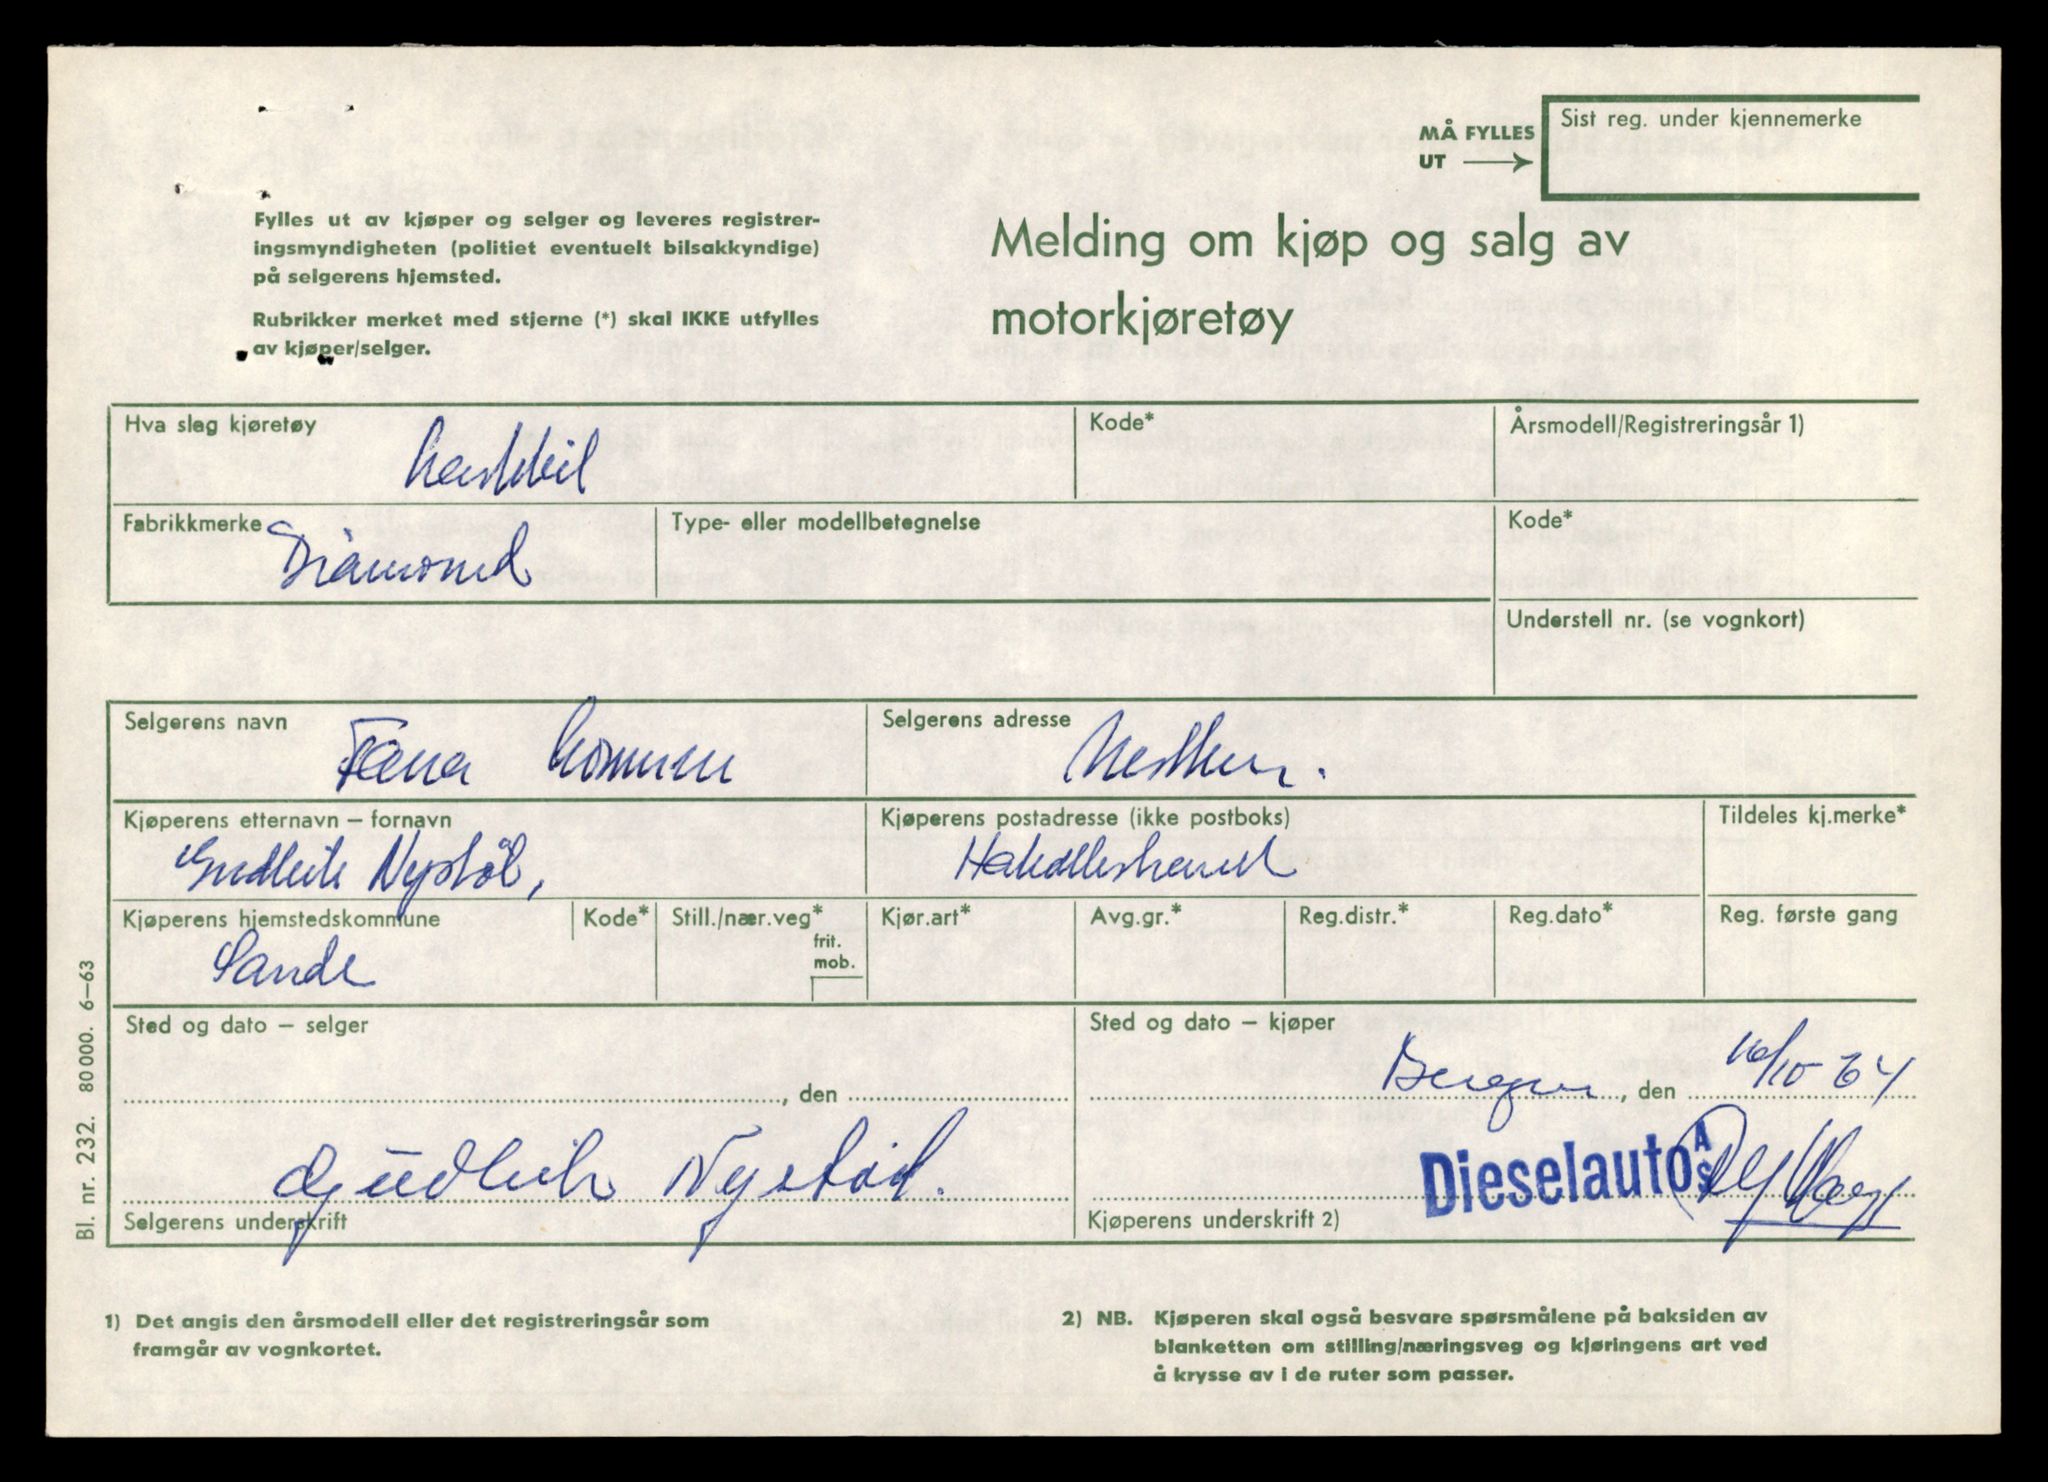 MÅ FYLLES
UT
Sist reg. under kjennemerke
Fylles ut av kjøper og selger og leveres registrer-
ingsmyndigheten (politiet eventuelt bilsakkyndige)
på selgerens hjemsted.
Rubrikker merket med stjerne (*) skal IKKE utfylles
av kjøper/selger.
Melding om kjøp og salg av
motorkjøretøy
Hva slag kjøretøy
Lastebil
Kode*
Årsmodell/Registreringsår 1)
Fabrikkmerke
Diamond
Type- eller modellbetegnelse
Kode*
Understell nr. (se vognkort)
Selgerens navn
Fana Kommune
Selgerens adresse
Nesttun.
Kjøperens etternavn – fornavn
Gudleik Nystøl,
Kjøperens postadresse (ikke postboks)
Tildeles kj.merke*
Kjøperens hjemstedskommune
Sande
Kode*
Still./nær.veg*
frit.
mob.
Kjør.art*
Avg.gr.*
Reg.distr.*
Reg.dato*
Reg. første gang
Sted og dato – selger
, den
Sted og dato – kjøper
Bergen, den 16/10-64
Gudleik Nystøl.
Selgerens underskrift
Dieselauto A/S
Kjøperens underskrift 2)
Bl. nr. 232. 80000. 6–63
1) Det angis den årsmodell eller det registreringsår som
framgår av vognkortet.
2) NB. Kjøperen skal også besvare spørsmålene på baksiden av
blanketten om stilling/næringsveg og kjøringens art ved
å krysse av i de ruter som passer.